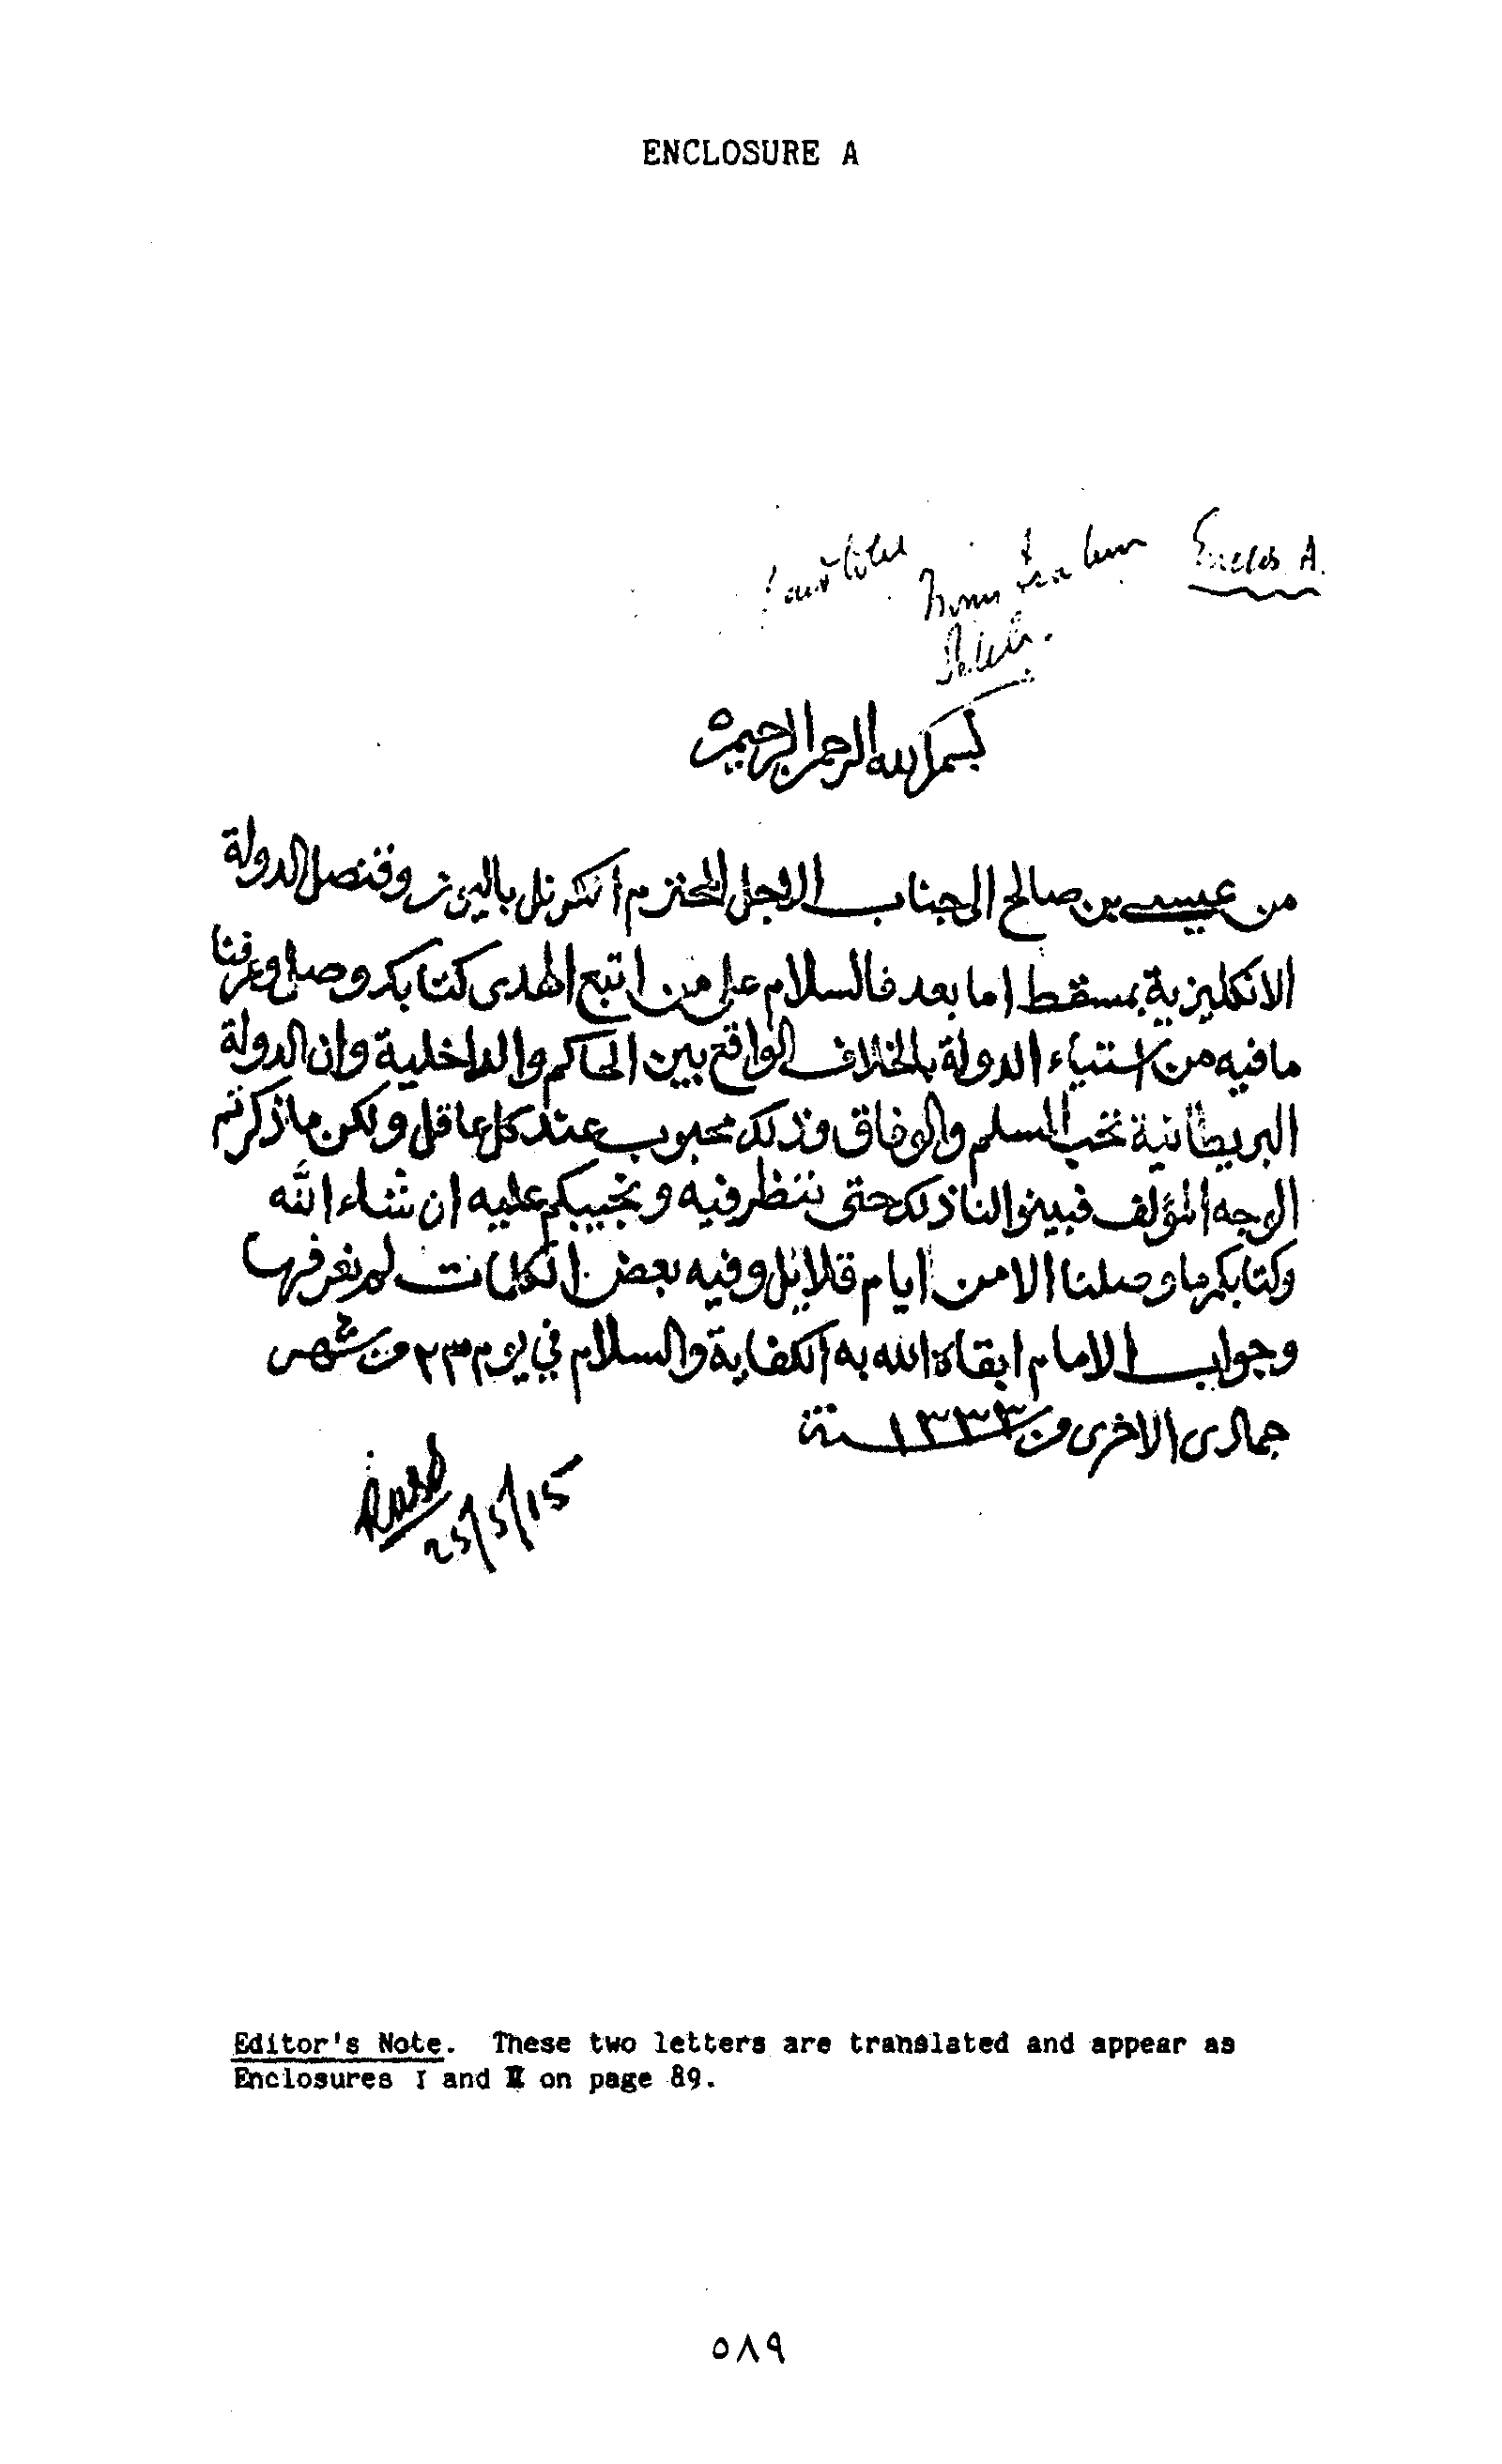 ENCLOSURE A
Enclos A.
from Isa bin
Saleh.
بسم الله الرحمن الرحيم
من عيسى بن صالح الى جناب الاجل المحترم الكرنل باليوز وقنصل الدولة
الانكليزية بمسقط اما بعد فالسلام على من اتبع الهدى كتابكم وصل وعرفنا
ما فيه من استياء الدولة بالخلاف الواقع بين الحاكم والداخلية وان الدولة
البريطانية تحب السلم والوفاق وذلك محبوب عند كل عاقل ولكن ما ذكرتم
الوجه المؤلف فبينوا لنا ذلك حتى ننظر فيه ونجيبكم عليه ان شاء الله
وكتابكم ما وصلنا الا من ايام قلائل وفيه بعض الكلمات لم نعرفها
وجواب الامام ابقاه الله به الكفاية والسلام في يوم ٢٣ من شهر
جمادى الاخرى من ١٣٣٣ سنة
25/5/15
Editor's Note. These two letters are translated and appear as
Enclosures I and II on page 89.
٥٨٩